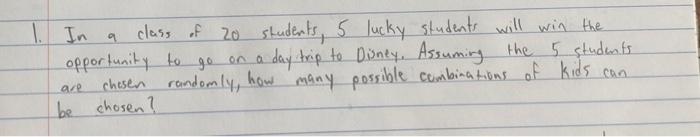 1. In a class of 20 students, 5 lucky students will win the
opportunity to go on a day trip to Disney. Assuming the 5 students
are chosen randomly, how many possible combinations of kids can
be chosen?